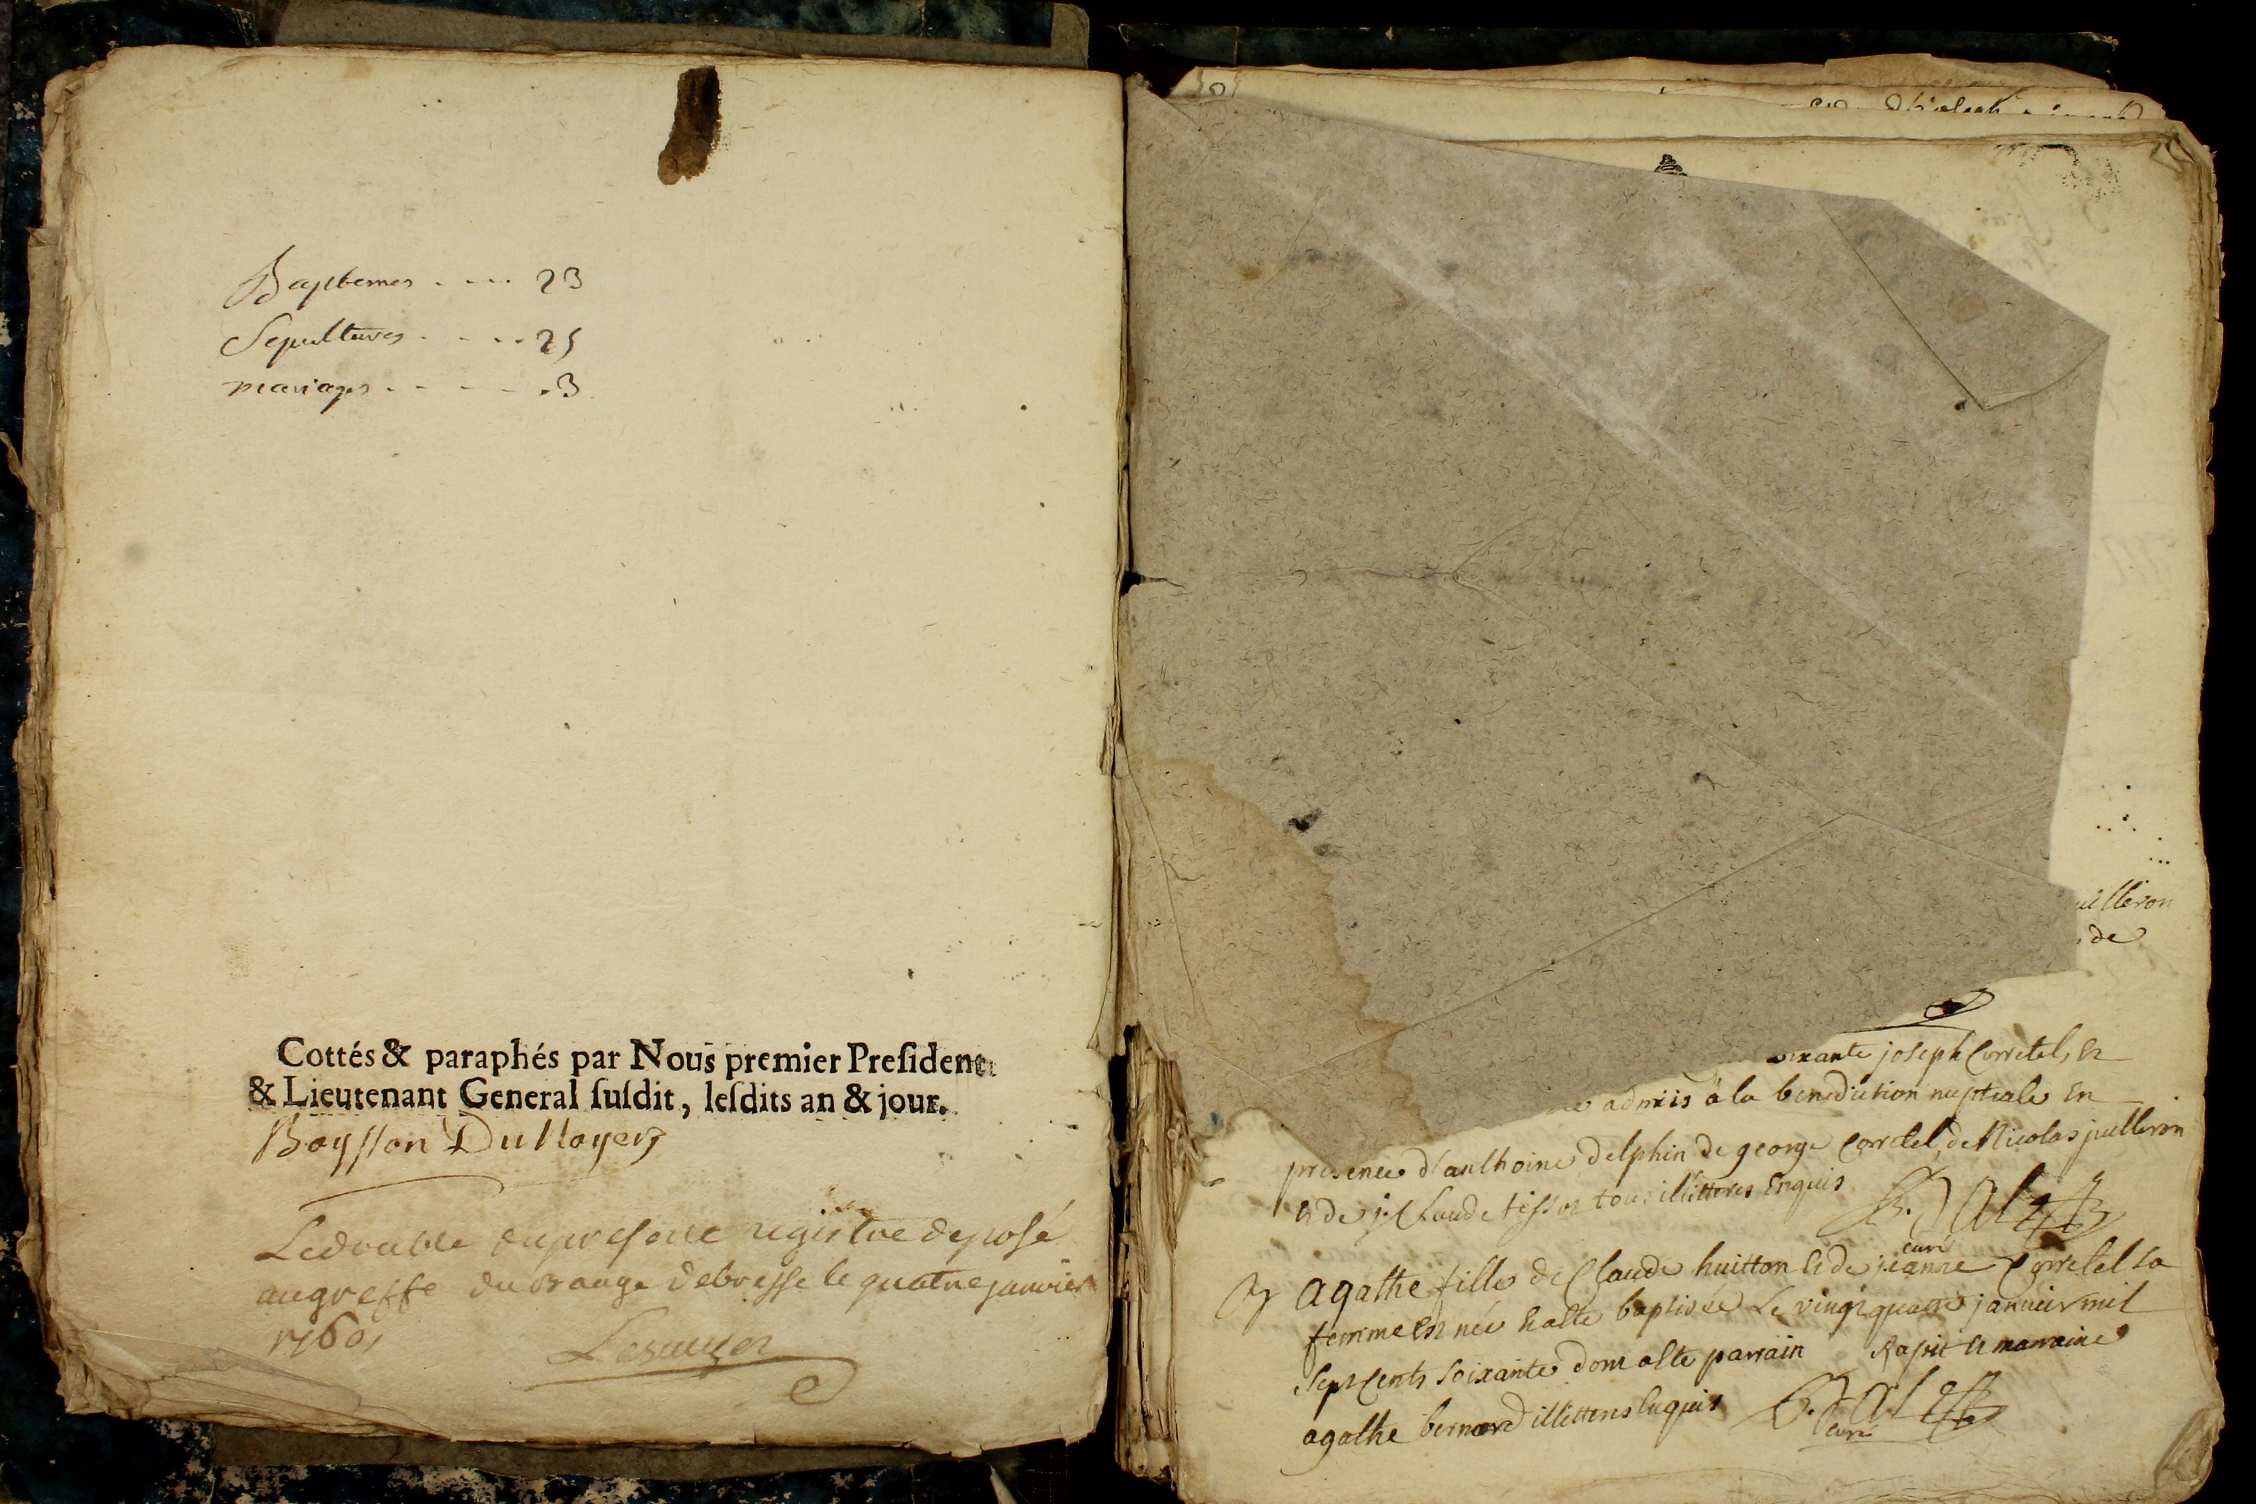 Baptemes . . . . 23
Sepultures . . . . . 25
mariages . . . . . . 3
Cottés & paraphés par Nous premier Preſident
& Lieutenant General ſuſdit, leſdits an & jour.
Le double du present registre deposé
au greffe du Bailliage de bresse le quatre janvier
1760,
uilleron
de
oixante joseph Corretel, Et
admis a la benediction nuptiale En
presence d'anthoine delphin de george Corretel, de Nicolas juilleron
Et de j: Claude tissot tous illitteres Enquis
curé
agathe fille de Claude huitton Et de jeanne Corretel sa
femme Est née Et a été baptisée Le vingt quatre janvier mil
Sept Cents Soixante dont a Eté parrain Et marraine
agathe bernard illitteres Enquis
curé